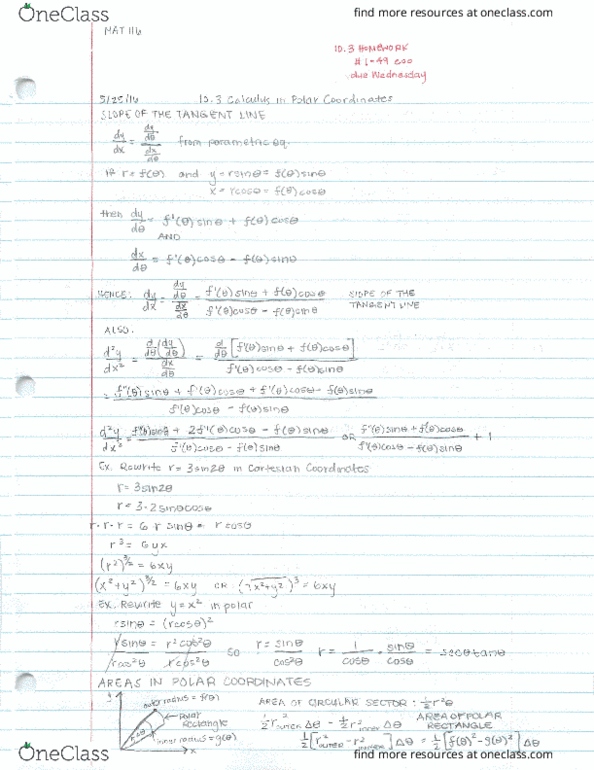 OneClass
find more resources at oneclass.com
MAT 116
10.3 HOMEWORK
#1-49 eoo
due Wednesday
5/25/16 10.3 Calculus in Polar Coordinates
SLOPE OF THE TANGENT LINE
dy/dx = (dy/dθ)/(dx/dθ) from parametric eq.
If r = f(θ) and y = rsinθ = f(θ)sinθ
x = rcosθ = f(θ)cosθ
then dy/dθ = f'(θ)sinθ + f(θ)cosθ
AND
dx/dθ = f'(θ)cosθ - f(θ)sinθ
HENCE: dy/dx = (dy/dθ)/(dx/dθ) = (f'(θ)sinθ + f(θ)cosθ)/(f'(θ)cosθ - f(θ)sinθ) SLOPE OF THE TANGENT LINE
ALSO:
d²y/dx² = (d/dθ(dy/dθ))/(dx/dθ) = (d/dθ[f'(θ)sinθ + f(θ)cosθ])/(f'(θ)cosθ - f(θ)sinθ)
= (f''(θ)sinθ + f'(θ)cosθ + f'(θ)cosθ - f(θ)sinθ)/(f'(θ)cosθ - f(θ)sinθ)
d²y/dx² = + 2f'(θ)cosθ - f(θ)sinθ)/(f'(θ)cosθ - f(θ)sinθ) OR (f''(θ)sinθ + f'(θ)cosθ)/(f'(θ)cosθ - f(θ)sinθ) + 1
Ex. Rewrite r = 3sin2θ in Cartesian Coordinates
r = 3sin2θ
r = 3·2sinθcosθ
r·r·r = 6 r sinθ · rcosθ
r³ = 6yx
(r²)^3/2 = 6xy
(x²+y²)^3/2 = 6xy OR (√x²+y²)³ = 6xy
Ex. Rewrite y = x² in polar
rsinθ = (rcosθ)²
rsinθ/rcos²θ = r²cos²θ/rcos²θ so r = sinθ/cos²θ r = 1/cosθ · sinθ/cosθ = secθtanθ
AREAS IN POLAR COORDINATES
y
outer radius = f(θ)
AREA OF CIRCULAR SECTOR: ½r²θ
polar Rectangle
½r²outer Δθ - ½r²inner Δθ AREA OF POLAR RECTANGLE
Δθ
inner radius = g(θ)
x
½[r²outer - r²inner]Δθ = ½[f(θ)² - g(θ)²]Δθ
OneClass
find more resources at oneclass.com